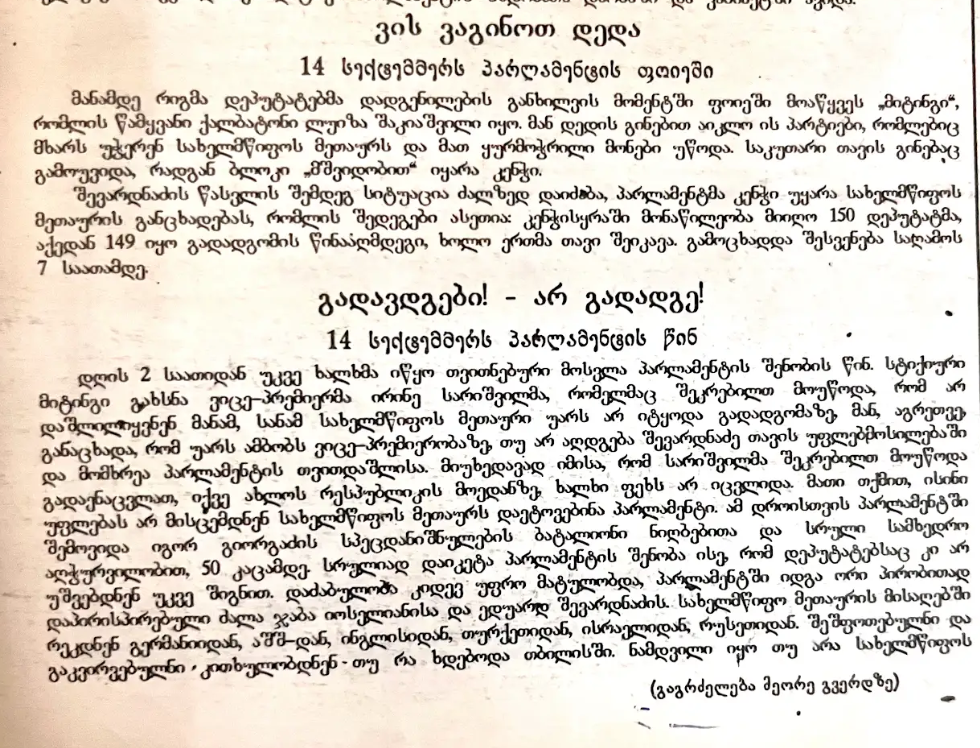 ვის ვაგინოთ დედა
14 სექტემბერს პარლამენტის ფოიეში
მანამდე რიგმა დეპუტატებმა დადგენილების განხილვის მომენტში ფოიეში მოაწყვეს „მიტინგი“,
რომლის წამყვანი ქალბატონი ლუიზა შაკიაშვილი იყო. მან დედის გინებით აიკლო ის პარტიები, რომლებიც
მხარს უჭერენ სახელმწიფოს მეთაურს და მათ ყურმოჭრილი მონები უწოდა. საკუთარი თავის გინებაც
გამოუვიდა, რადგან ბლოკი „მშვიდობით“ იყარა კენჭი.
შევარდნაძის წასვლის შემდეგ სიტუაცია ძალზედ დაიძაბა, პარლამენტმა კენჭი უყარა სახელმწიფოს
მეთაურის განცხადებას, რომლის შედეგები ასეთია: კენჭისყრაში მონაწილეობა მიიღო 150 დეპუტატმა,
აქედან 149 იყო გადადგომის წინააღმდეგი, ხოლო ერთმა თავი შეიკავა. გამოცხადდა შესვენება საღამოს
7 საათამდე.
გადავდგები! - არ გადადგე!
14 სექტემბერს პარლამენტის წინ
დღის 2 საათიდან უკვე ხალხმა იწყო თვითნებური მოსვლა პარლამენტის შენობის წინ. სტიქიური
მიტინგი გახსნა ვიცე-პრემიერმა ირინე სარიშვილმა, რომელმაც შეკრებილთ მოუწოდა, რომ არ
დაშლილიყვნენ მანამ, სანამ სახელმწიფოს მეთაური უარს არ იტყოდა გადადგომაზე, მან, აგრეთვე,
განაცხადა, რომ უარს ამბობს ვიცე-პრემიერობაზე, თუ არ აღდგება შევარდნაძე თავის უფლებმოსილებაში
და მომხრეა პარლამენტის თვითდაშლისა. მიუხედავად იმისა, რომ სარიშვილმა შეკრებილთ მოუწოდა
გადაენაცვლათ, იქვე ახლოს რესპუბლიკის მოედანზე, ხალხი ფეხს არ იცვლიდა. მათი თქმით, ისინი
უფლებას არ მისცემდნენ სახელმწიფოს მეთაურს დაეტოვებინა პარლამენტი. ამ დროისთვის პარლამენტში
შემოვიდა იგორ გიორგაძის სპეცდანიშნულების ბატალიონი ნიღბებითა და სრული სამხედრო
აღჭურვილობით, 50 კაცამდე. სრულიად დაიკეტა პარლამენტის შენობა ისე, რომ დეპუტატებსაც კი არ
უშვებდნენ უკვე შიგნით. დაძაბულობა კიდევ უფრო მატულობდა, პარლამენტში იდგა ორი პირობითად
დაპირისპირებული ძალა ჯაბა იოსელიანისა და ედუარდ შევარდნაძის. სახელმწიფო მეთაურის მისაღებში
რეკდნენ გერმანიიდან, აშშ-დან, ინგლისიდან, თურქეთიდან, ისრაელიდან, რუსეთიდან. შეშფოთებულნი და
გაკვირვებულნი კითხულობდნენ - თუ რა ხდებოდა თბილისში. ნამდვილი იყო თუ არა სახელმწიფოს
(გაგრძელება მეორე გვერდზე)